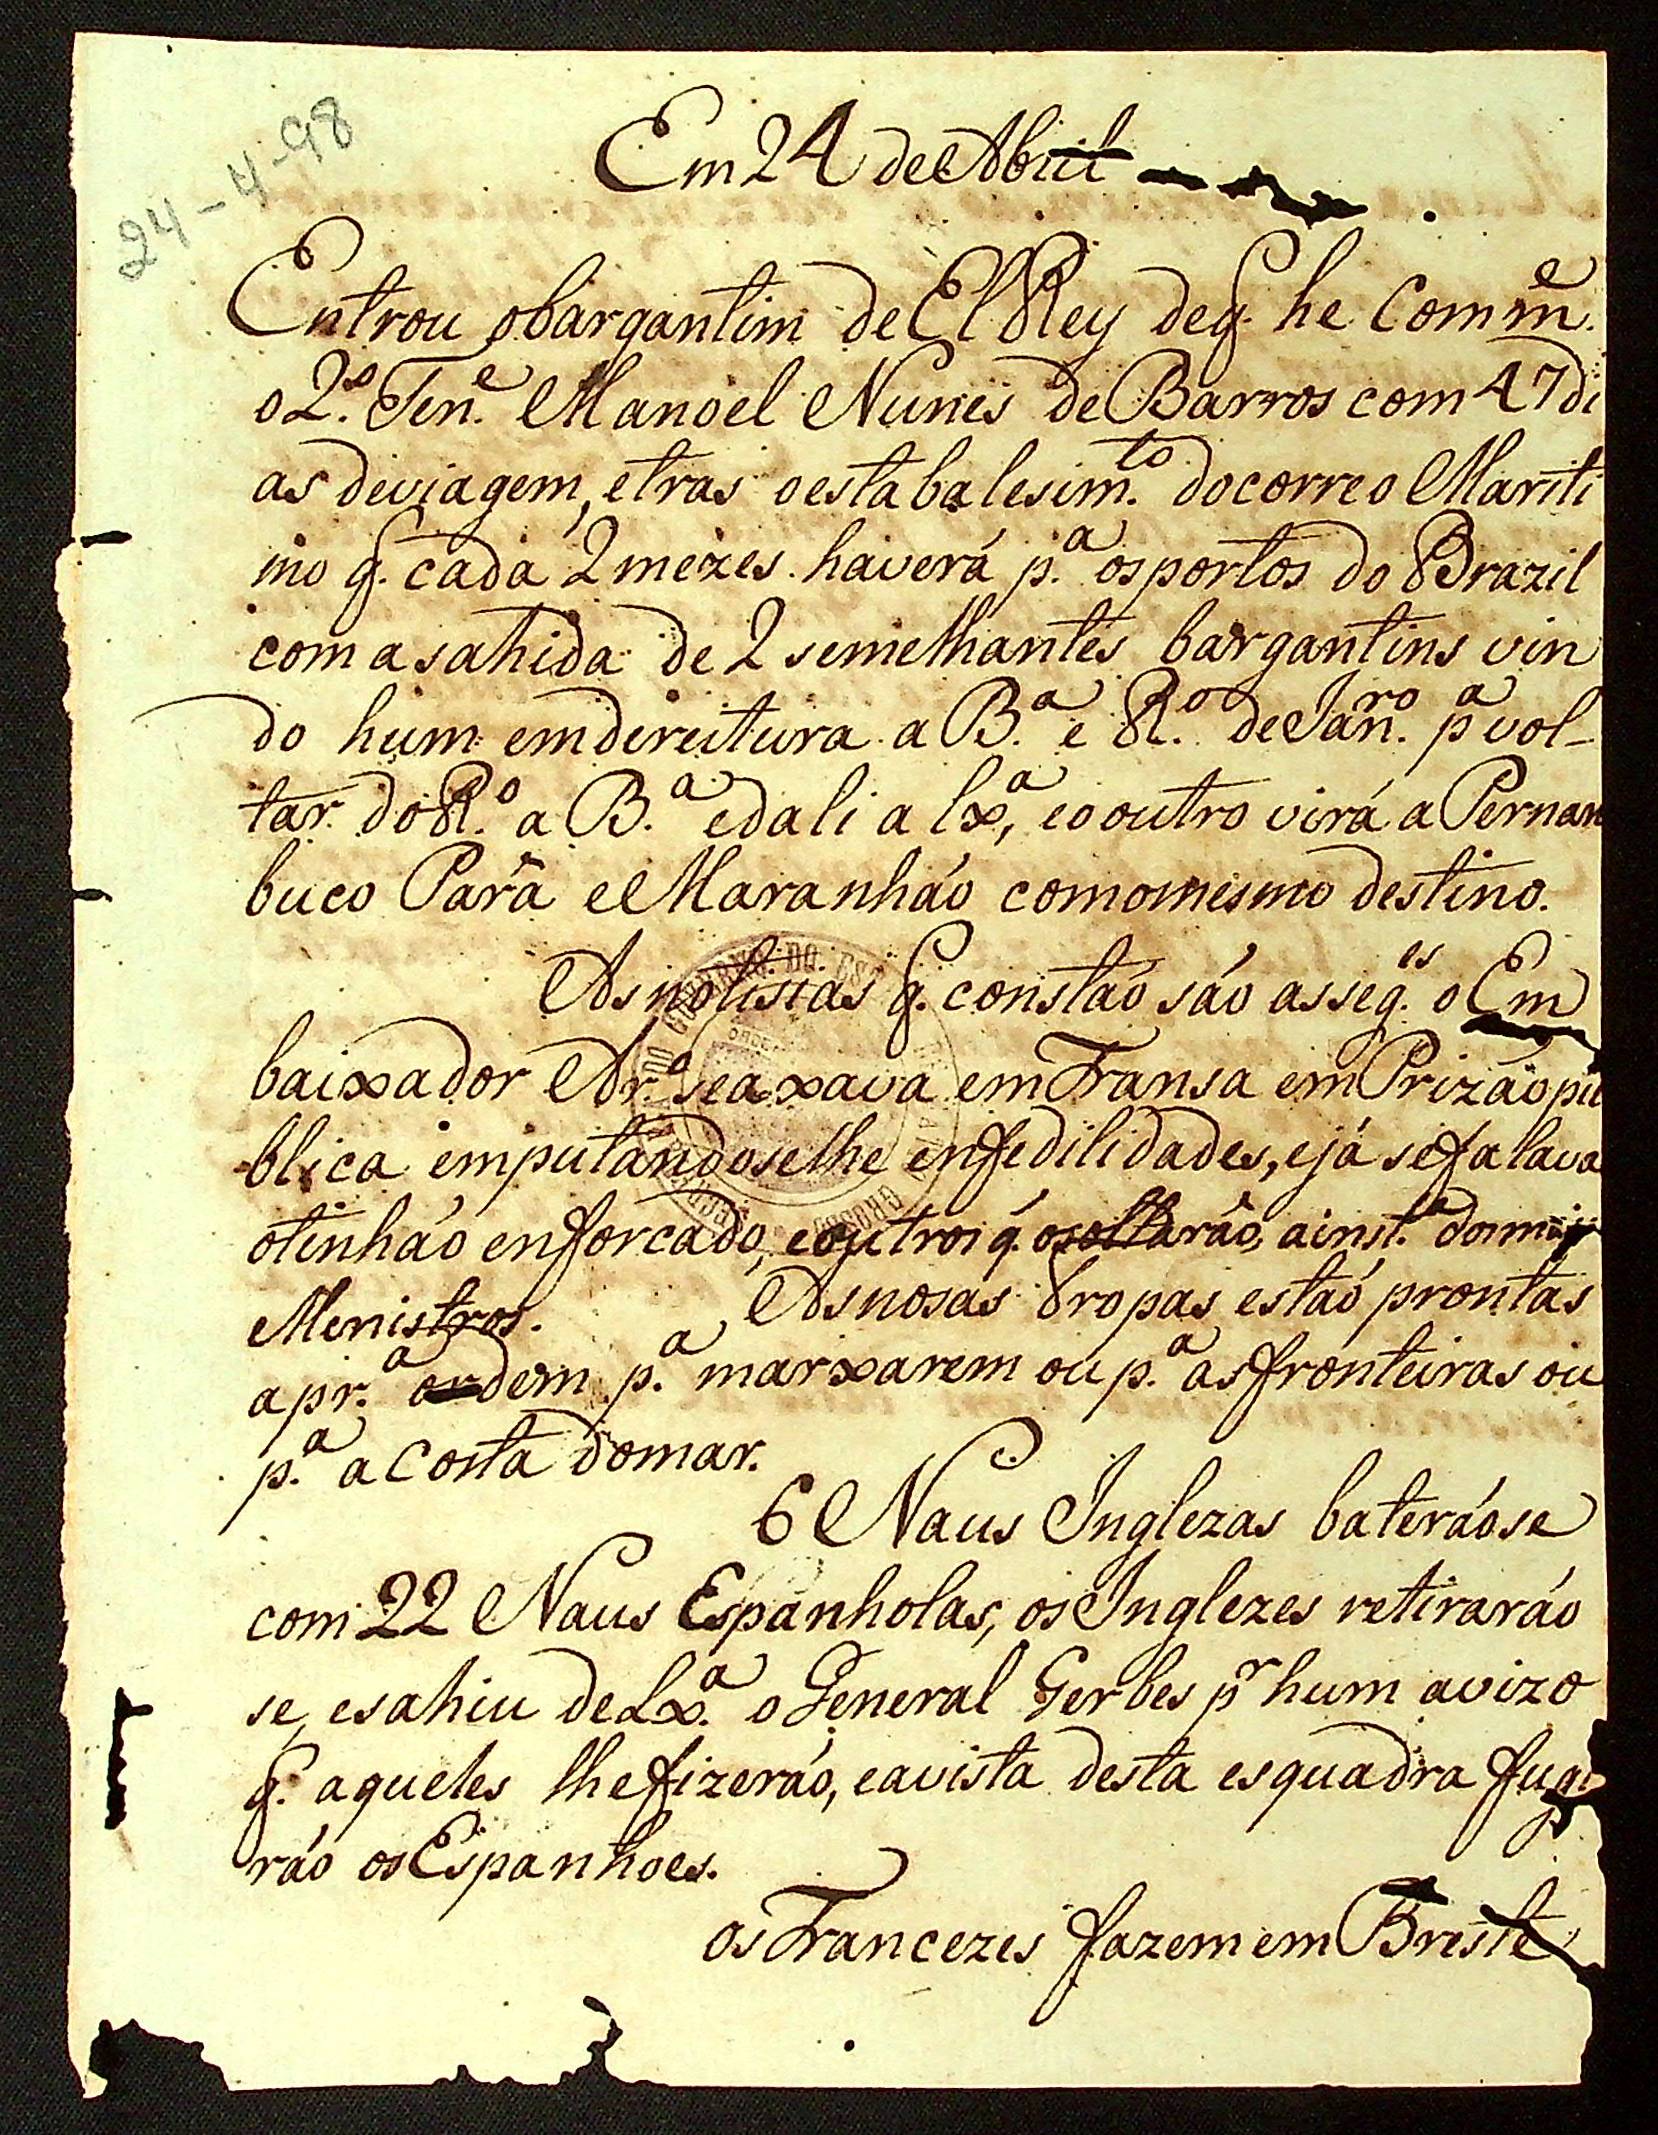 24-4-98
Em 24 de Abril
Entrou o bargantim de El Rey de q. he Comm.e
o 2.º Ten.e Manoel Nunes de Barros com 47 di
as de viagem, e tras o estabalesim.to do correo Mariti
mo q. cada 2 mezes haverá p.a os portos do Brazil
com a sahida de 2 semelhantes bargantins vin
do hum em direitura a B.a e R.º de Jan.ro p.a vol-
tar do R.º a B.a e dali a Lx.a, e o outro virá a Pernam
buco Pará e Maranháo com o mesmo destino.
As notisias q. constaó sáo as seg.es o Em
baixador Ar.º se axava em Fransa em Prizáo pu
blica emputandoselhe enfedilidades, e já se falava
o tinháo enforcado, e outros q. o soltaráo, a inst.a dos mais
Menistros. As nosas tropas estaó prontas
a pr.a ordem p.a marxarem ou p.a as fronteiras ou
p.a a Costa do mar.
6 Naus Inglezas bateráose
com 22 Naus Espanholas, os Inglezes retiraráo
se, e sahiu de Lx.a o General Gerbes p.r hum avizo
q. aqueles lhe fizeráo, e a vista desta esquadra fugi
ráo os Espanhoes.
os Francezes fazem em Breste